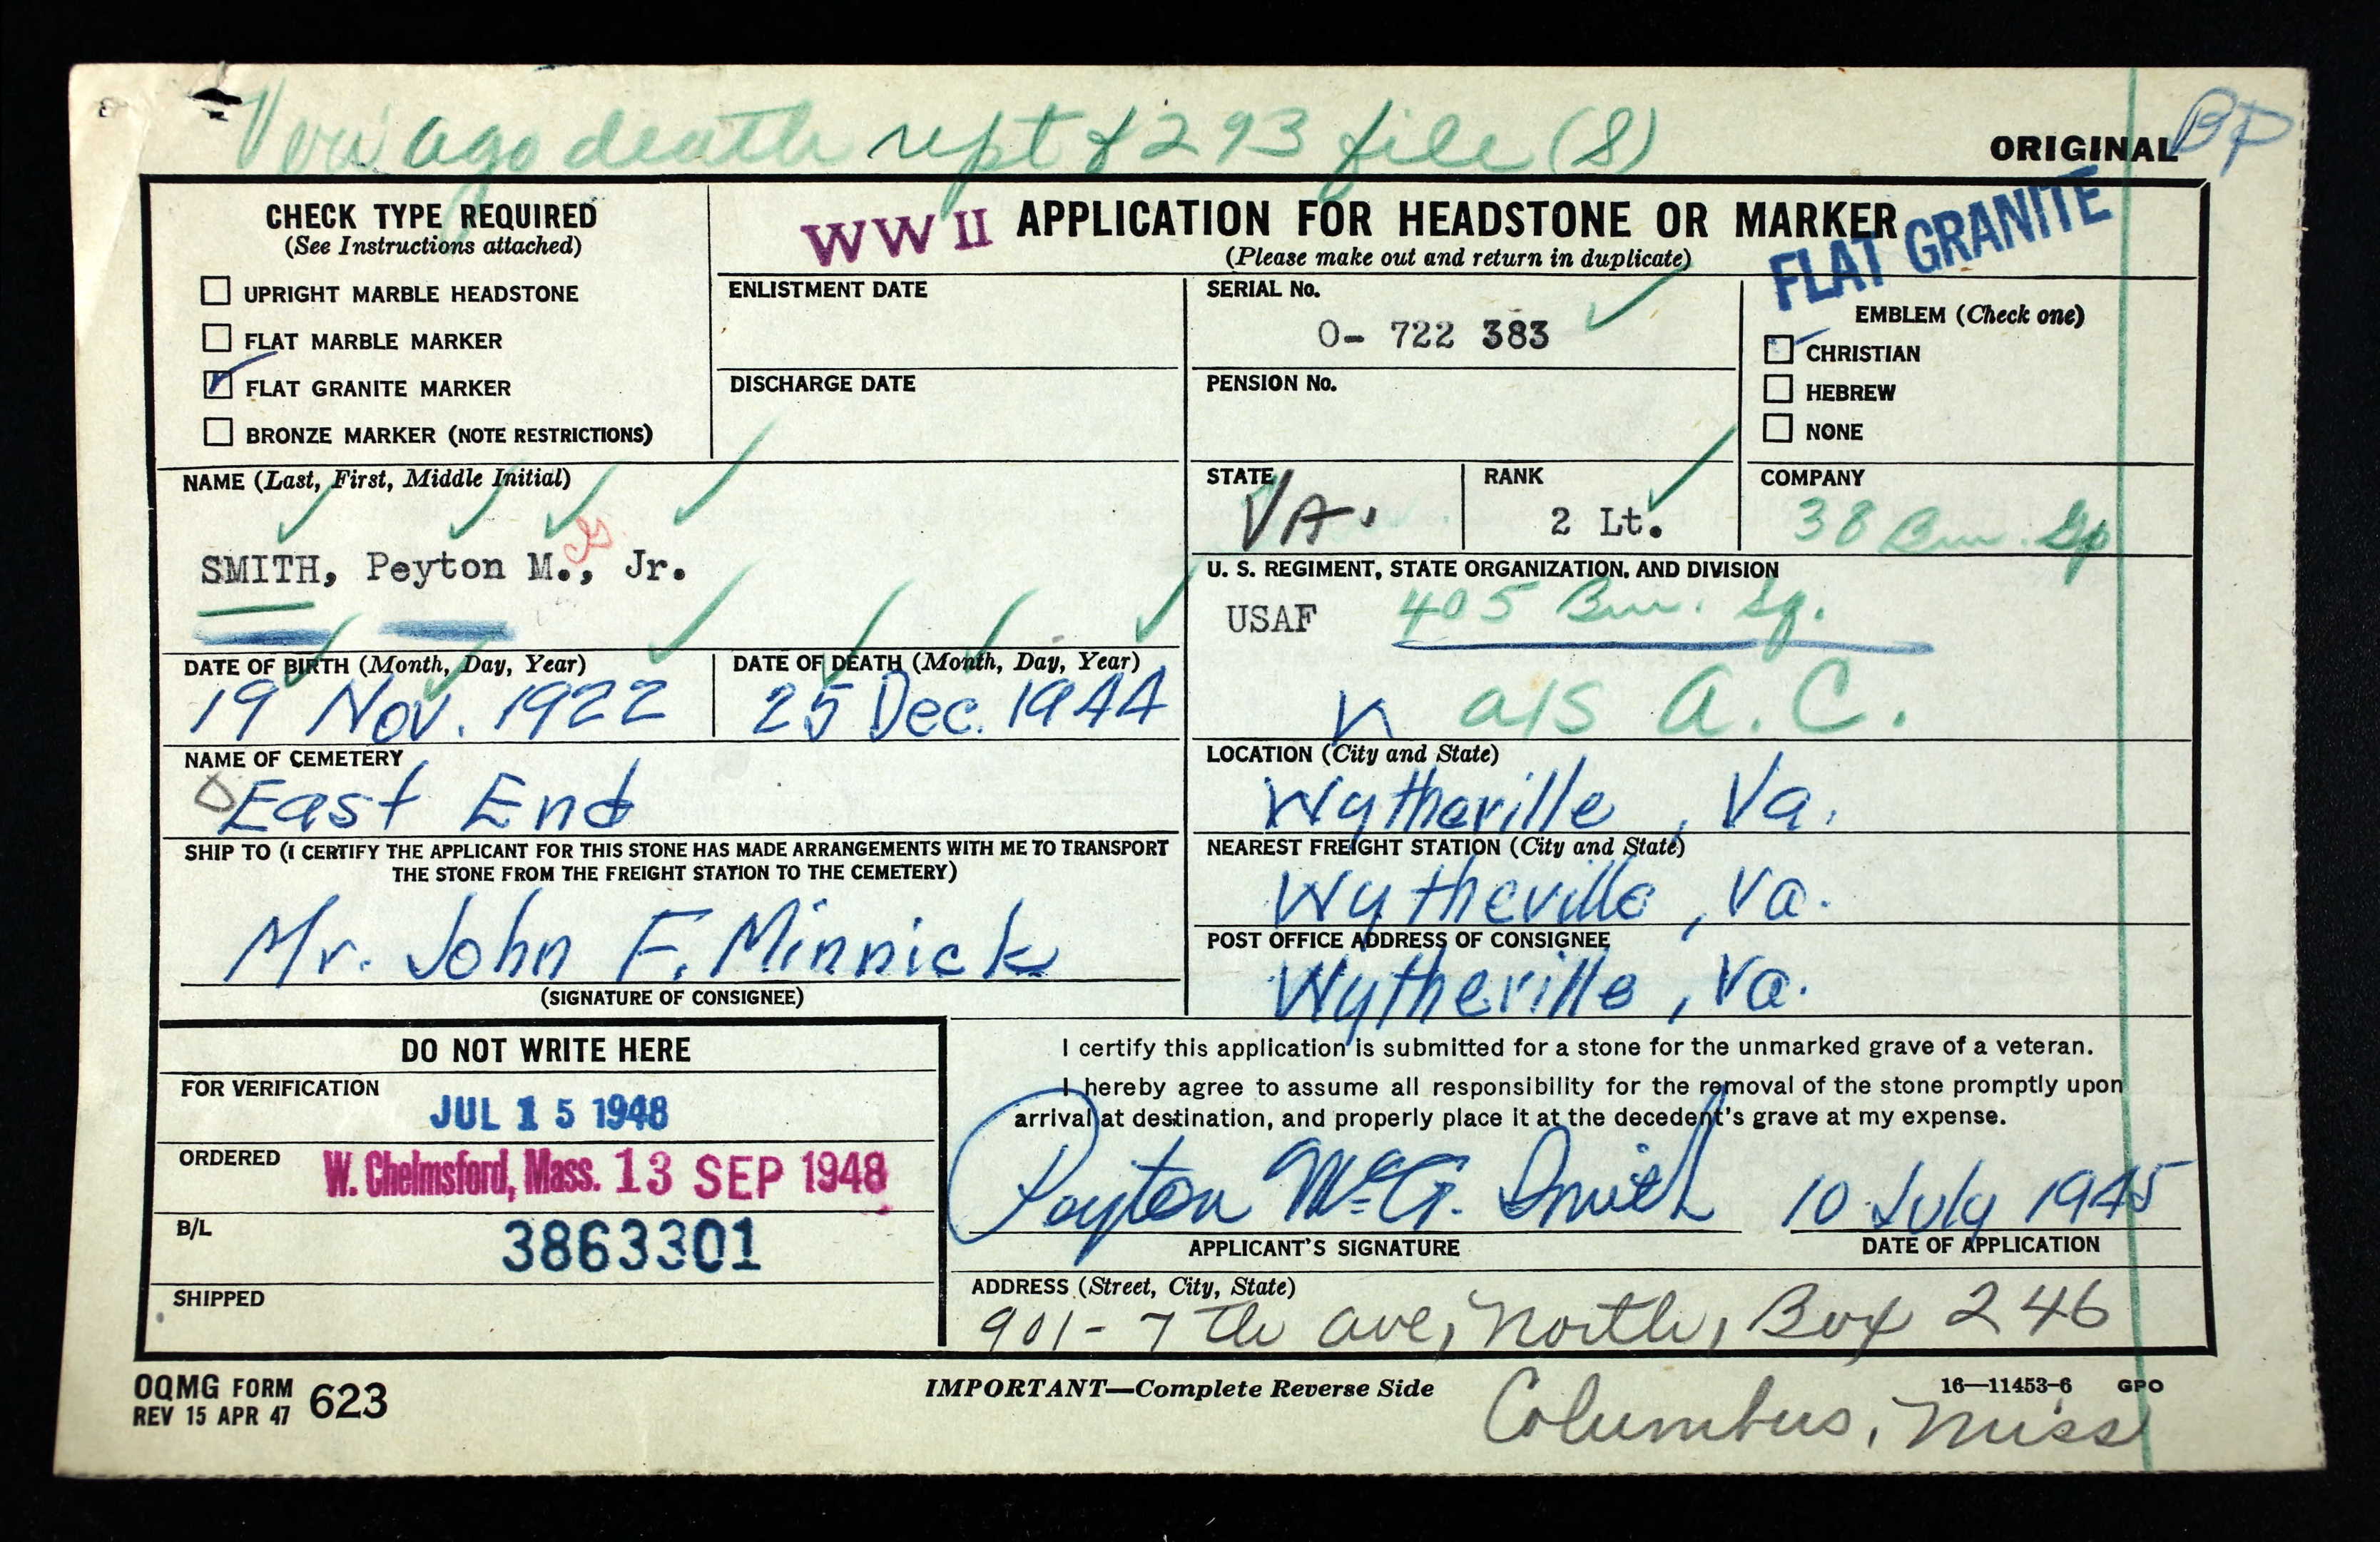 Veri ago death rept & 293 file (S)
ORIGINAL BP
CHECK TYPE REQUIRED
(See Instructions attached)
UPRIGHT MARBLE HEADSTONE
FLAT MARBLE MARKER
FLAT GRANITE MARKER
BRONZE MARKER (NOTE RESTRICTIONS)
WW II APPLICATION FOR HEADSTONE OR MARKER
(Please make out and return in duplicate)
FLAT GRANITE
ENLISTMENT DATE
DISCHARGE DATE
SERIAL No.
O- 722 383
PENSION No.
EMBLEM (Check one)
CHRISTIAN
HEBREW
NONE
NAME (Last, First, Middle Initial)
SMITH, Peyton M., Jr.
STATE
VA.
RANK
2 Lt.
COMPANY
38 Bm. Gp
U. S. REGIMENT, STATE ORGANIZATION, AND DIVISION
USAF 405 Bm. Sq.
a/s A.C.
DATE OF BIRTH (Month, Day, Year)
19 Nov. 1922
DATE OF DEATH (Month, Day, Year)
25 Dec. 1944
NAME OF CEMETERY
East End
LOCATION (City and State)
Wytheville, Va.
SHIP TO (I CERTIFY THE APPLICANT FOR THIS STONE HAS MADE ARRANGEMENTS WITH ME TO TRANSPORT
THE STONE FROM THE FREIGHT STATION TO THE CEMETERY)
Mr. John F. Minnick
(SIGNATURE OF CONSIGNEE)
NEAREST FREIGHT STATION (City and State)
Wytheville, Va.
POST OFFICE ADDRESS OF CONSIGNEE
Wytheville, Va.
DO NOT WRITE HERE
FOR VERIFICATION
JUL 15 1948
ORDERED W. Chelmsford, Mass. 13 SEP 1948
B/L
3863301
SHIPPED
I certify this application is submitted for a stone for the unmarked grave of a veteran.
I hereby agree to assume all responsibility for the removal of the stone promptly upon
arrival at destination, and properly place it at the decedent's grave at my expense.
Peyton McG. Smith 10 July 1945
APPLICANT'S SIGNATURE
DATE OF APPLICATION
ADDRESS (Street, City, State)
901-7th ave, North, Box 246
Columbus, Miss
OQMG FORM 623
REV 15 APR 47
IMPORTANT—Complete Reverse Side
16—11453-6 GPO